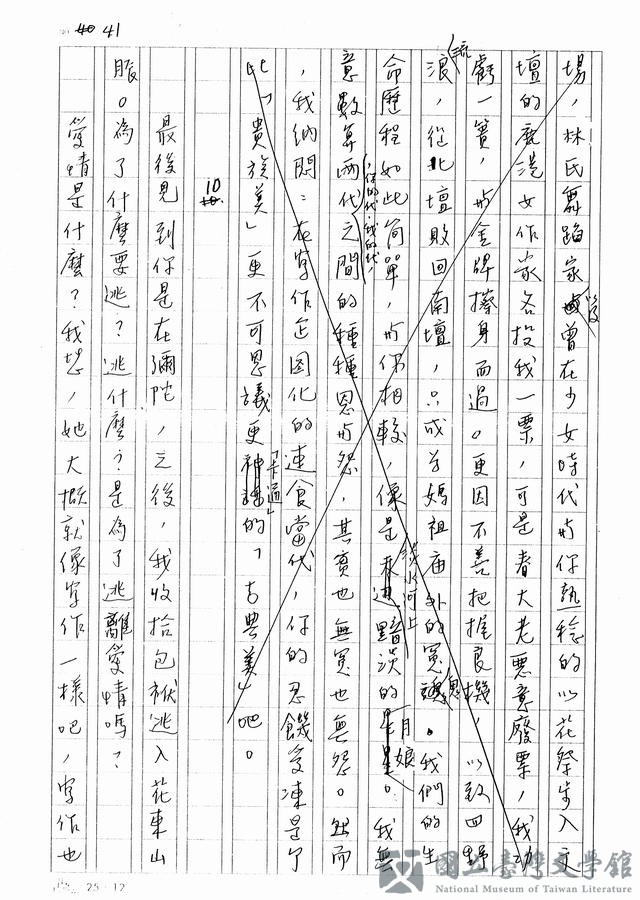 41
場，林氏舞蹈家以及曾在少女時代與你熟稔的以花祭步入文
壇的鹿港女作家各投我一票，可是春大老惡意廢票，我功
虧一簣，與金牌擦身而過。更因不善把握良機，以致四野流
浪，從北壇敗回南壇，只成為媽祖庙外的冤魂。我們的生
命歷程如此簡單，與你相較，像是淡水河上黯淡的月娘。我無
意數算兩代之間，你的代，我的代，的種種恩與怨，其實也無冤也無怨。然而
，我納悶：在寫作企圖化的速食當代，你的忍饑受凍是个
此「貴族美」更不可思議更「卡通」的「古典美」吧。
10
最後見到你是在彌陀，之後，我收拾包袱逃入花東山
脈。為了什麼要逃？逃什麼？是為了逃離愛情嗎？
愛情是什麼？我想，她大概就像寫作一樣吧，寫作也
25×12
國立臺灣文學館
National Museum of Taiwan Literature